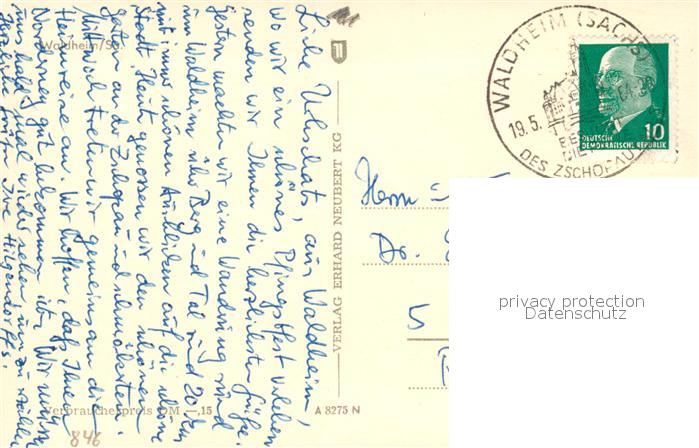 Waldheim/Sa.
Liebe Uhschats, aus Waldheim,
wo wir ein schönes Pfingstfest verleben
senden wir Ihnen die herzlichsten Grüße.
Gestern machten wir eine Wandrung rund
um Waldheim über Berg und Tal rund 20 km
mit immer schönen Ausblicken auf die schöne
Stadt. Heut genossen wir den schönen
Garten an der Zschopau und schmückerten.
Mittwoch treten wir gemeinsam die
Heimreise an. Wir hoffen, daß Ihnen
Norderney gut bekommen ist. Wir müssen
uns bald mal wiedersehen um zu erzählen
Herzliche Grüße Ihre Hilgendorffs.
Verbrauchspreis DM —,15
846
A 8275 N
VERLAG ERHARD NEUBERT KG
WALDHEIM (SACHS)
19.5.
DES ZSCHOPAU
10
DEUTSCHE
DEMOKRATISCHE REPUBLIK
Herrn u.
Dr.
5
privacy protection
Datenschutz